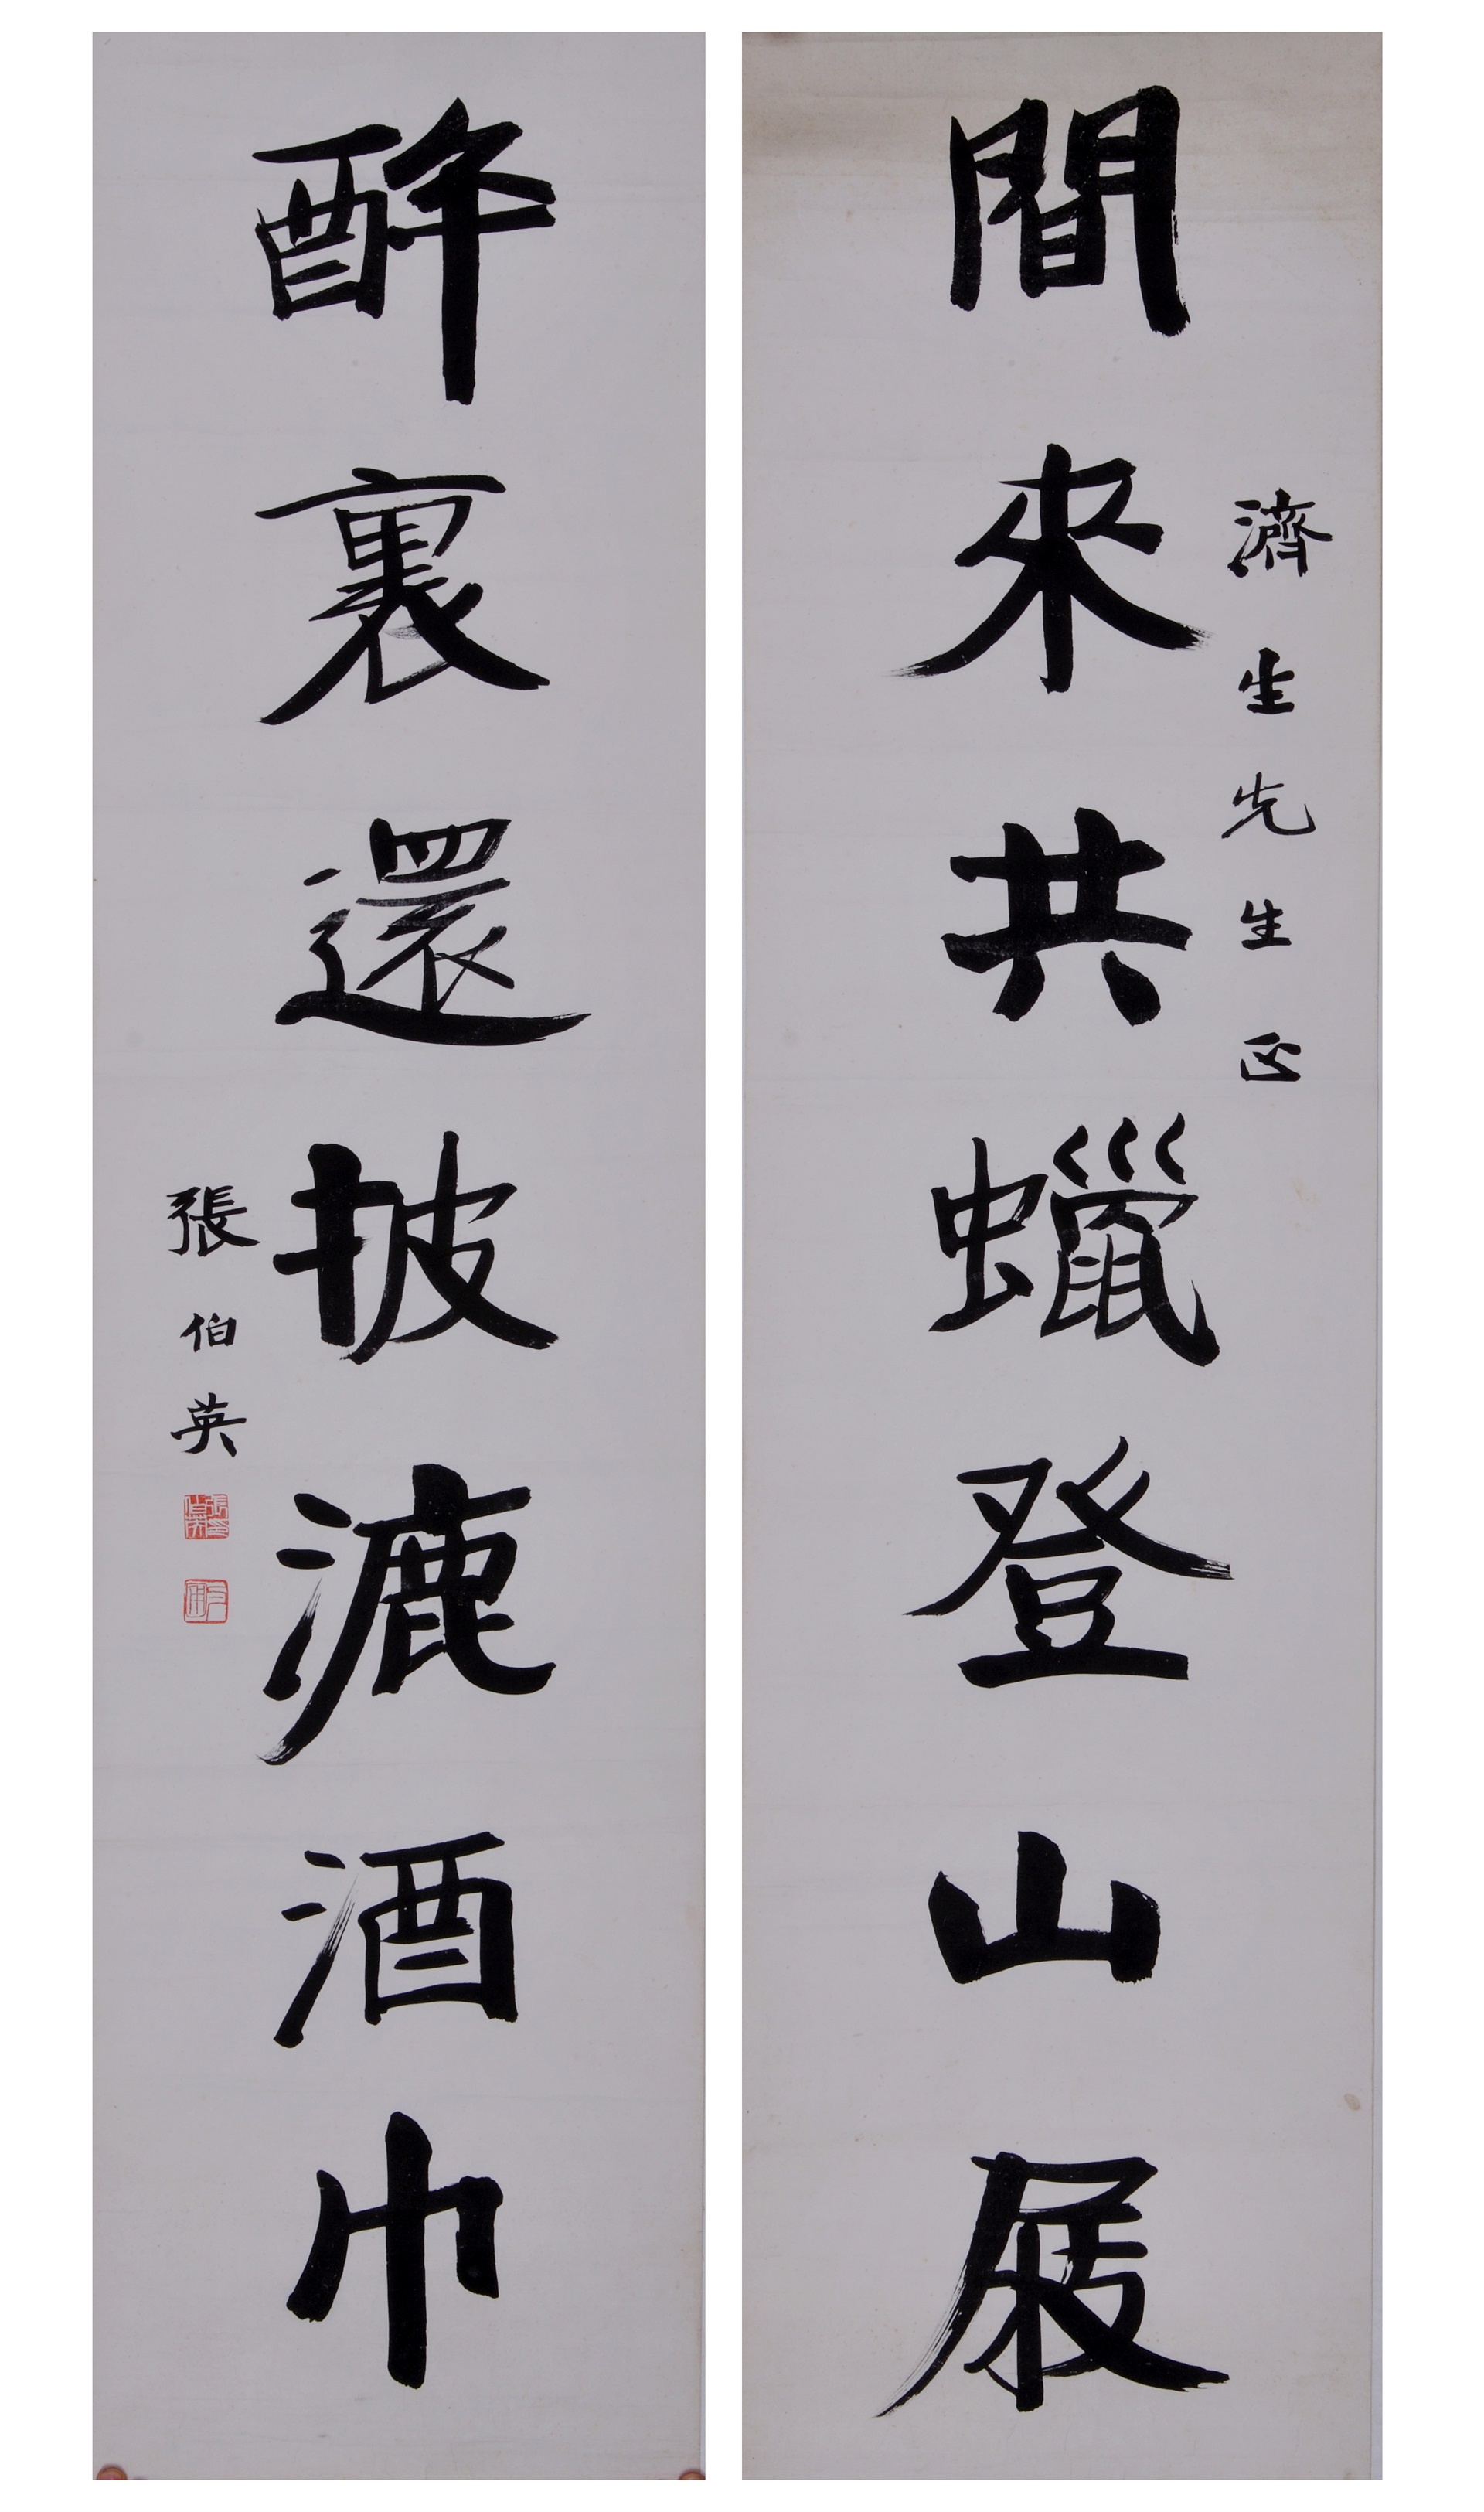 閒來共蠟登山屐
濟生先生正
醉裏還披漉酒巾
張伯英